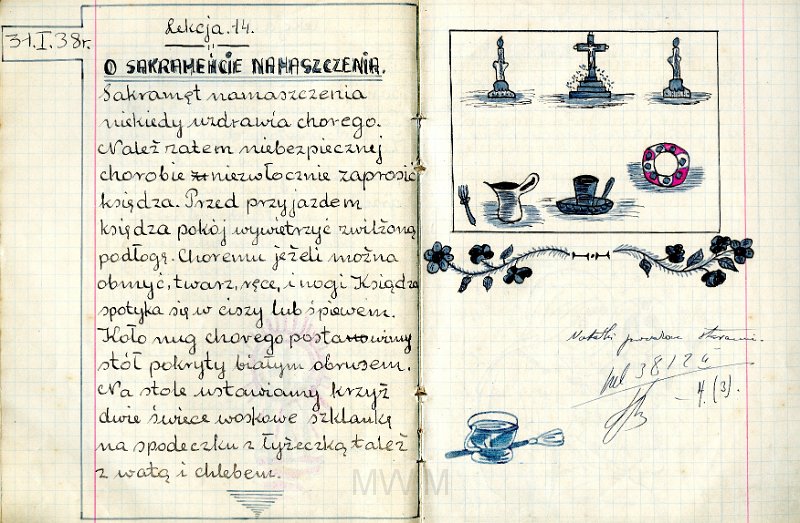 31.I.38r.
Lekcja.14.
O SAKRAMEŃCIE NAMASZCZENIA.
Sakramęt namaszczenia
niekiedy uzdrawia chorego.
Należ zatem niebezpiecznej
chorobie niezwłocznie zaprosić
księdza. Przed przyjazdem
księdza pokój wywiętrzyć zwilżoną
podłogę. Choremu jeżeli można
obmyć, twarz, ręce, i nogi Księdza
spotyka się w ciszy lub śpiewem.
Koło nug chorego postawimy
stół pokryty białym obrusem.
Na stole ustawiamy krzyż
dwie świece woskowe szklankę
na spodeczku z łyżeczką talеż
z watą i chlebem.
Notatki
4.(3).
MWM